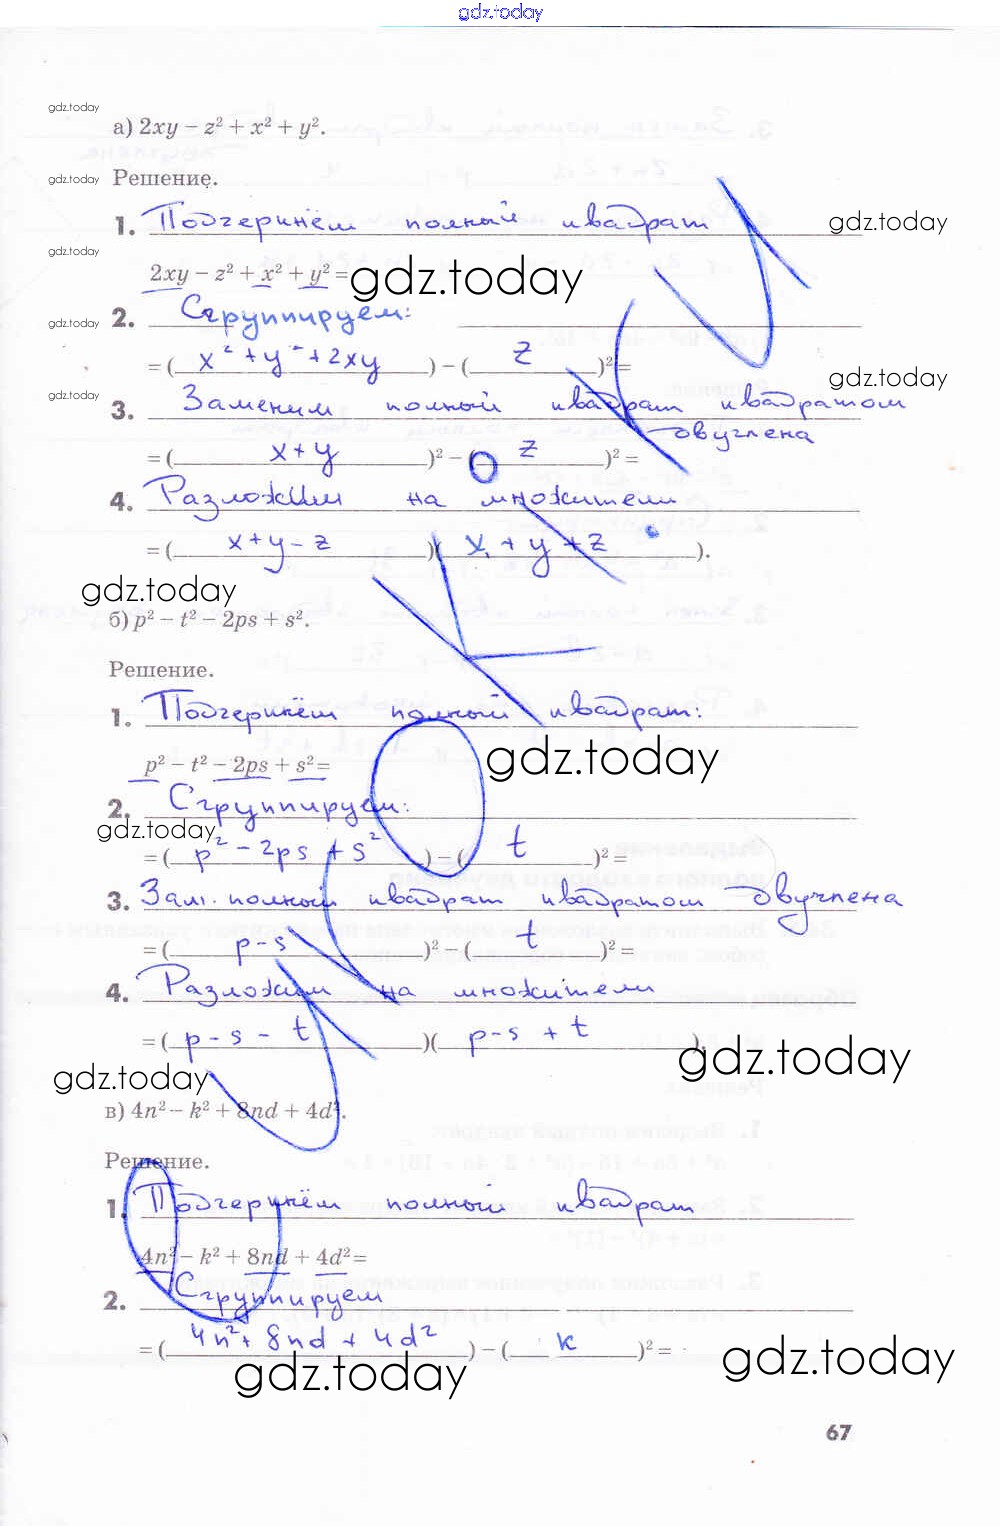 gdz.today
gdz.today
а) 2xy – z² + x² + y².
gdz.today
Решение.
1. Подчеркнём полный квадрат
gdz.today
gdz.today
2xy – z² + x² + y² =
gdz.today
gdz.today
2. Сгруппируем:
= ( x² + y² + 2xy ) – ( z )² =
gdz.today
gdz.today
3. Заменим полный квадрат квадратом
двучлена
= ( x+y )² – ( z )² =
4. Разложим на множители
= ( x+y–z )( x + y + z ).
gdz.today
б) p² – t² – 2ps + s².
Решение.
1. Подчеркнём полный квадрат:
p² – t² – 2ps + s² =
gdz.today
2. Сгруппируем:
gdz.today
= ( p² – 2ps + s² ) – ( t )² =
3. Зам. полный квадрат квадратом двучлена
= ( p–s )² – ( t )² =
4. Разложим на множители
= ( p–s – t )( p–s + t ).
gdz.today
gdz.today
в) 4n² – k² + 8nd + 4d².
Решение.
1. Подчеркнём полный квадрат
4n² – k² + 8nd + 4d² =
2. Сгруппируем
= ( 4n² + 8nd + 4d² ) – ( k )² =
gdz.today
gdz.today
67